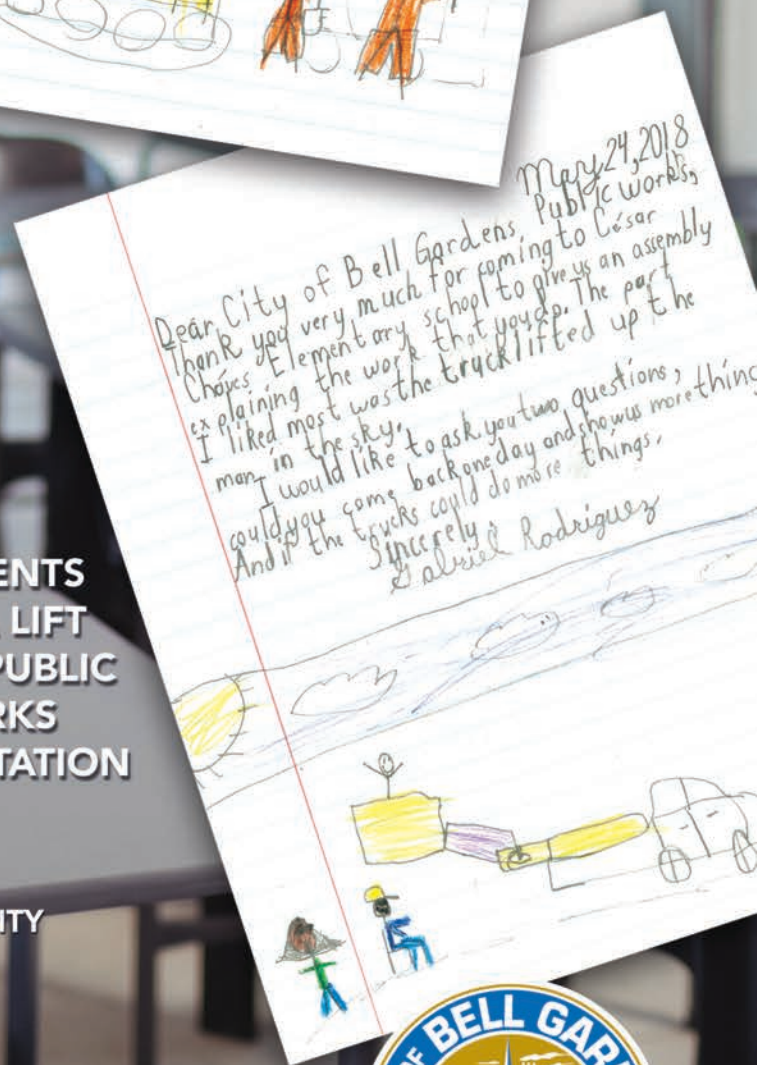 May, 24, 2018
Dear City of Bell Gardens, Public works,
Thank you very much for coming to César
Chaves Elementary school to give us an assembly
explaining the work that you do. The part
I liked most was the truck lifted up the
man in the sky.
I would like to ask you two questions,
could you come back one day and show us more thing
And if the trucks could do more things.
Sincerely,
Gabriel Rodriguez
ENTS
LIFT
PUBLIC
RKS
TATION
ITY
OF BELL GAR